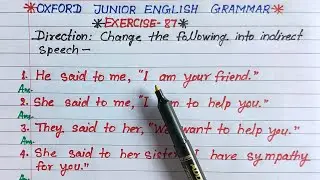 *OXFORD JUNIOR ENGLISH GRAMMAR*
*EXERCISE-87*
Direction: Change the following into indirect
speech—
1. He said to me, "I am your friend."
Ans-
2. She said to me, "I to help you."
Ans-
3. They said to her, "We want to help you."
Ans-
4. She said to her sister have sympathy
for you."